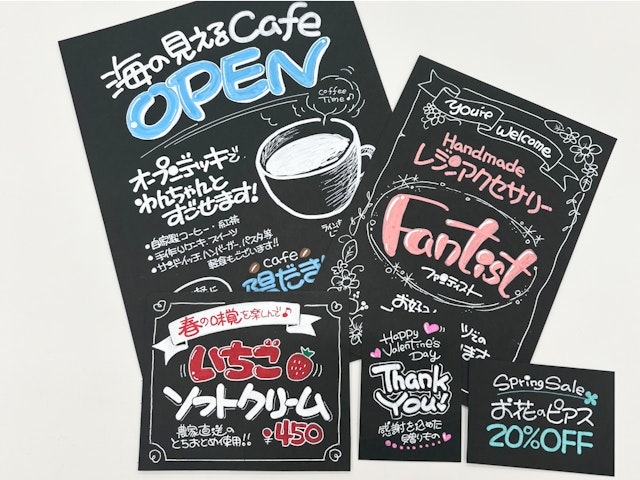 海の見えるCafe
OPEN
Coffee
Time♪
オープンデッキで
わんちゃんと
すごせます!
・自家製コーヒー・紅茶
・手作りケーキ、スイーツ
・サンドイッチ、ハンバーガー、パスタ等
軽食もございます!!
Cafe
陽だま
You're Welcome
Handmade
レジンアクセサリー
Fantist
ファンティスト
春の味覚を楽しんで♪
いちご
ソフトクリーム
農家直送の
とちおとめ使用!!
¥450
Happy
Valentine's
Day
Thank
You!
感謝を込めた
贈りもの
Spring Sale
お花のピアス
20%OFF